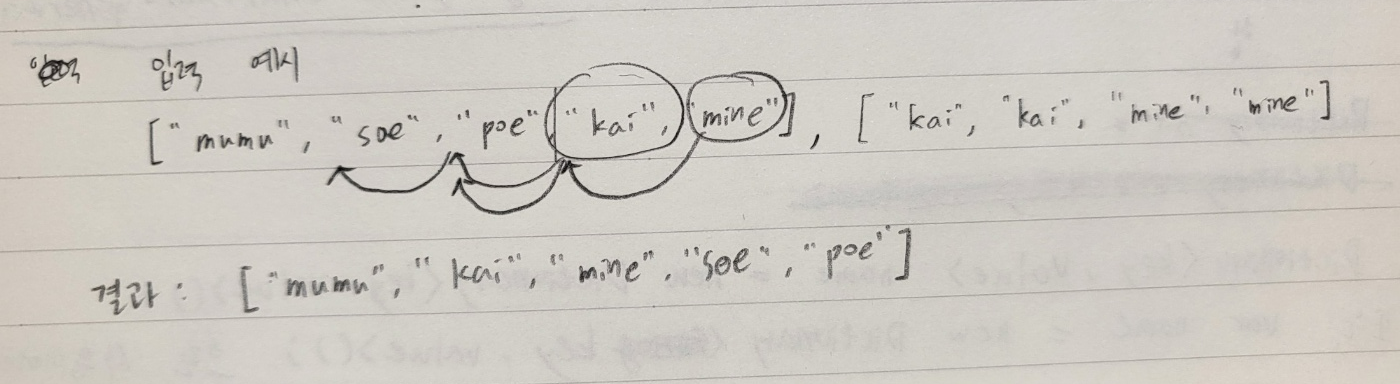 입력 예시
["mumu", "soe", "poe", "kai", "mine"], ["kai", "kai", "mine", "mine"]
결과 : ["mumu", "kai", "mine", "soe", "poe"]